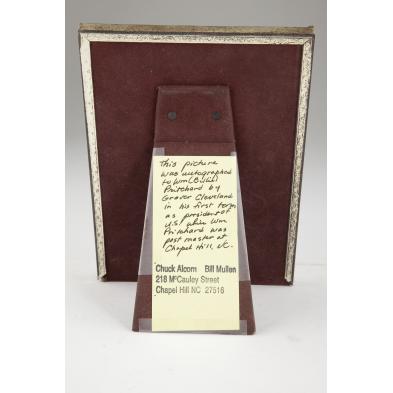 This picture
was autographed
to Wm (Billie)
Pritchard by
Grover Cleveland
in his first term
as president of
U.S. while Wm
Pritchard was
post master at
Chapel Hill, NC.
Chuck Alcorn Bill Mullen
218 McCauley Street
Chapel Hill NC 27516